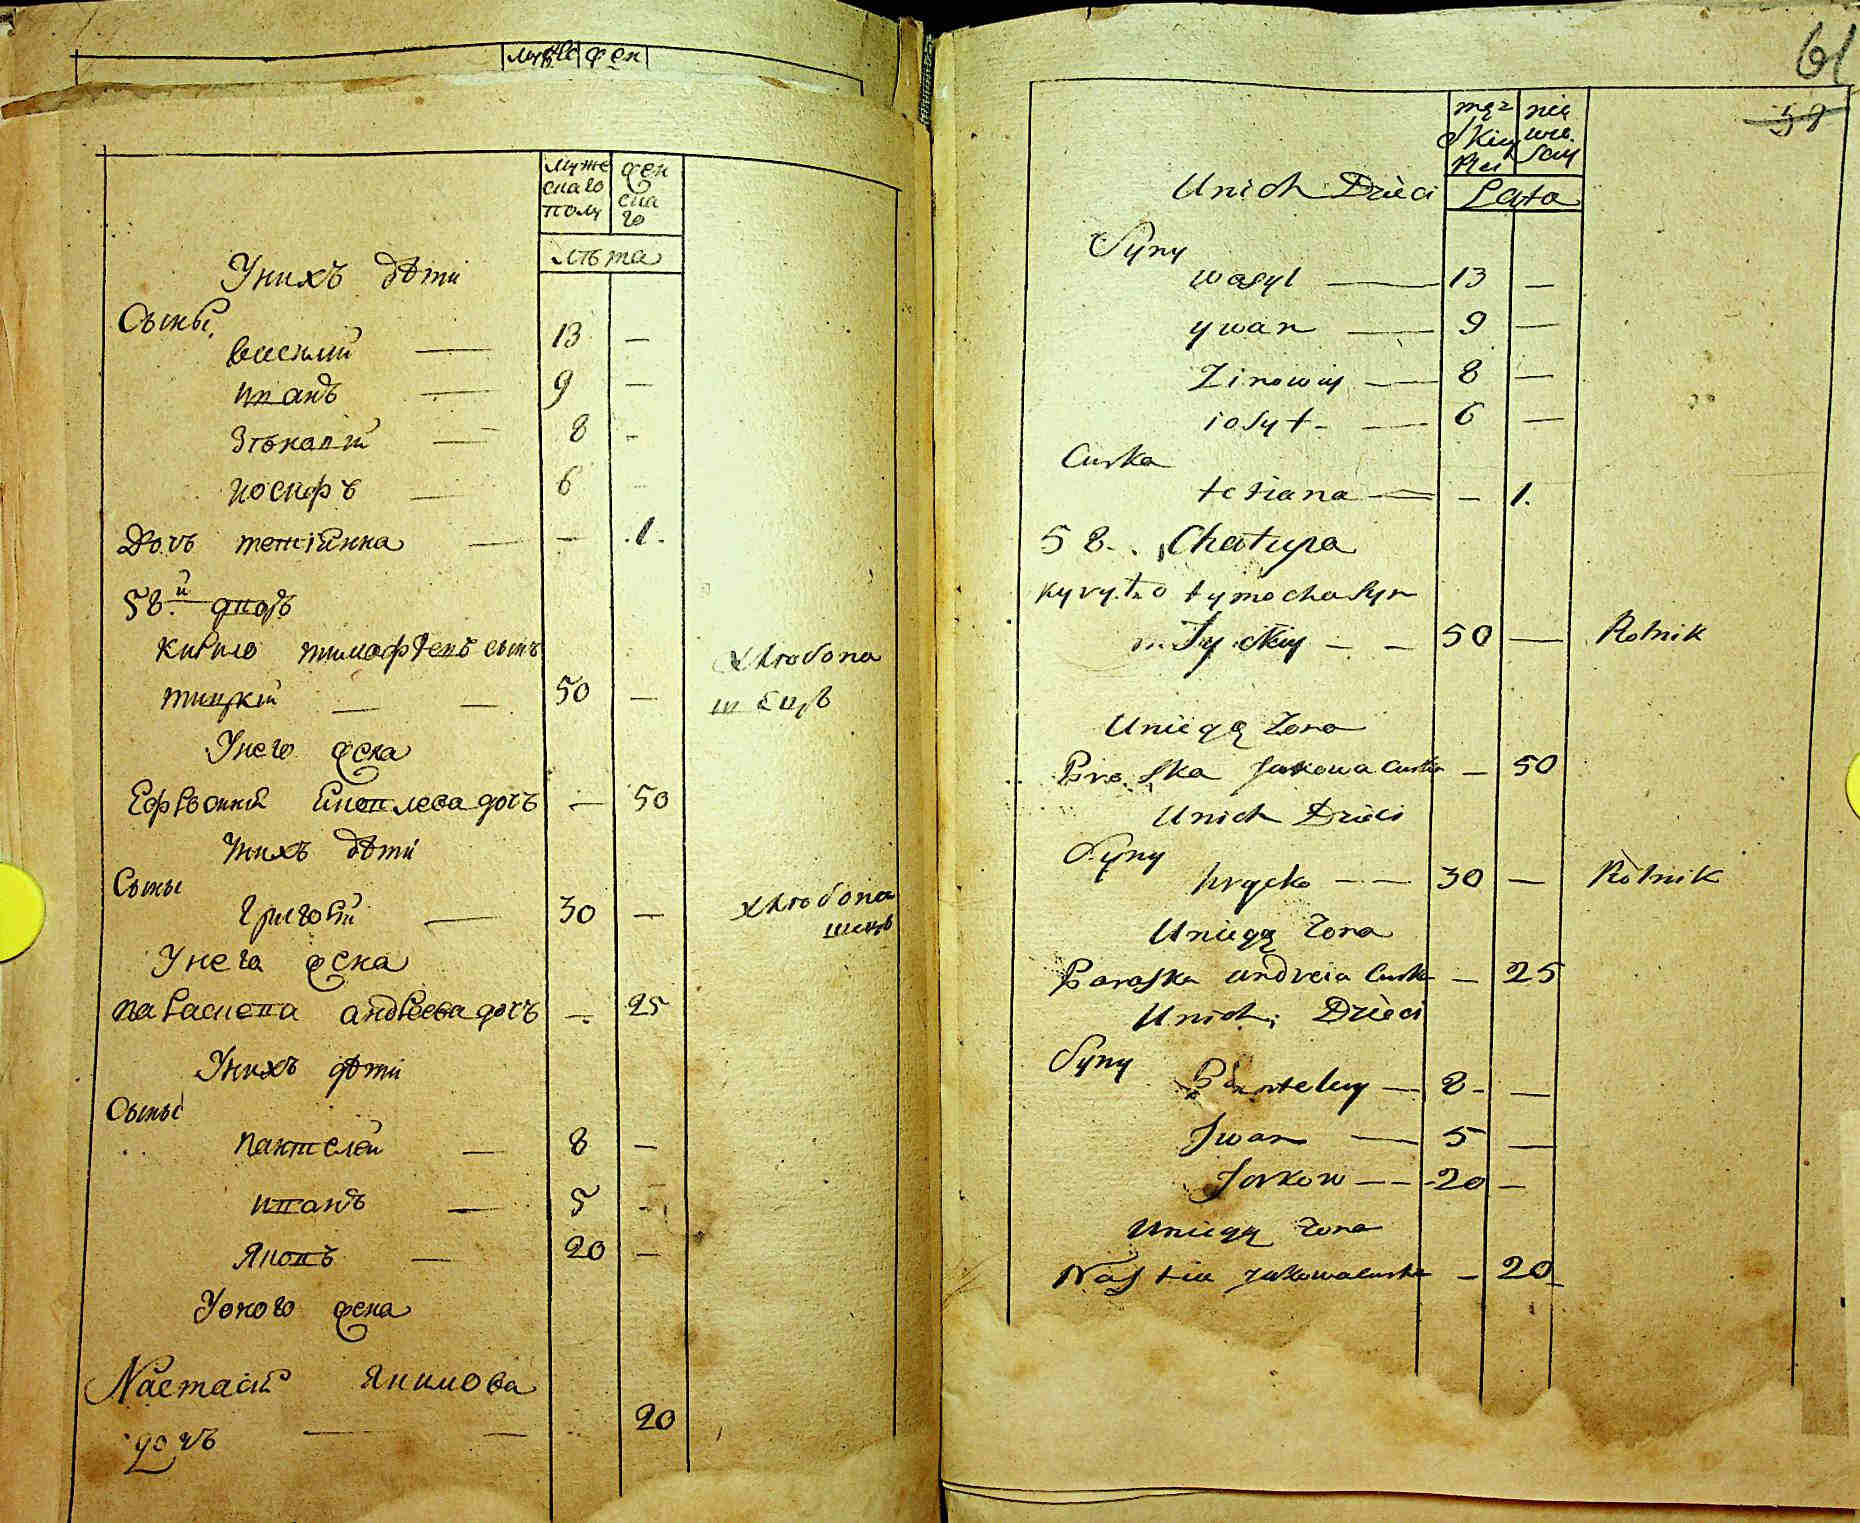 муже
скаго
полу
жен
ска
го
лѣта
Унихъ дѣти
Сыны
василий — 13 —
иванъ — 9 —
Зѣновій — 8 -
иосифъ — 6 -
Дочъ — .1.
58.й дворъ
Кирило тимофѣевъ сынъ
тицкій — — 50 —
хлѣбопа
шецъ
Унего жена
Ефросиния дочъ — 50
Унихъ дѣти
Сыны
Григорій — 30 — хлѣбопа
шецъ
Унего жена
параскева андреева дочъ — 25
Унихъ дѣти
Сыны
пантелей — 8 —
иванъ — 5 -
Яковъ — 20 —
Уоного жена
Настасия Якимова
дочъ — — 20
61
58
męz
skiey
Płci
nie
wie
sciy
Lata
Unich Dzieci
Syny
wasyl — 13 —
ywan — 9 —
Zinowiy — 8 —
iosyf — 6 —
Curka
tetiana — - 1.
58. Chatupa
kyryło tymocha syn
Tyckiy - - 50 — Rolnik
Uniegą Zona
Pro ska Jakowa Curka - 50
Unich Dzieci
Syny
hrycko — 30 — Rolnik
Uniegą Zona
Paraska andreia Curka - 25
Unich Dzieci
Syny
Panteley — 8 - —
Jwan — 5 —
Jarkow — 20 —
Uniegą Zona
Nastia Jakowa curka - 20